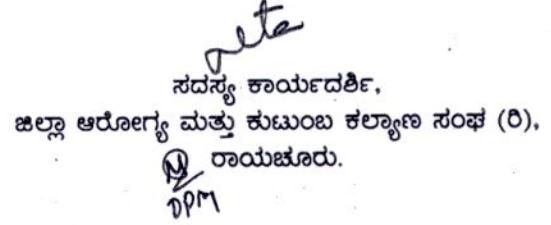 ಸದಸ್ಯ ಕಾರ್ಯದರ್ಶಿ,
ಜಿಲ್ಲಾ ಆರೋಗ್ಯ ಮತ್ತು ಕುಟುಂಬ ಕಲ್ಯಾಣ ಸಂಘ (ರಿ),
ರಾಯಚೂರು.
DPM